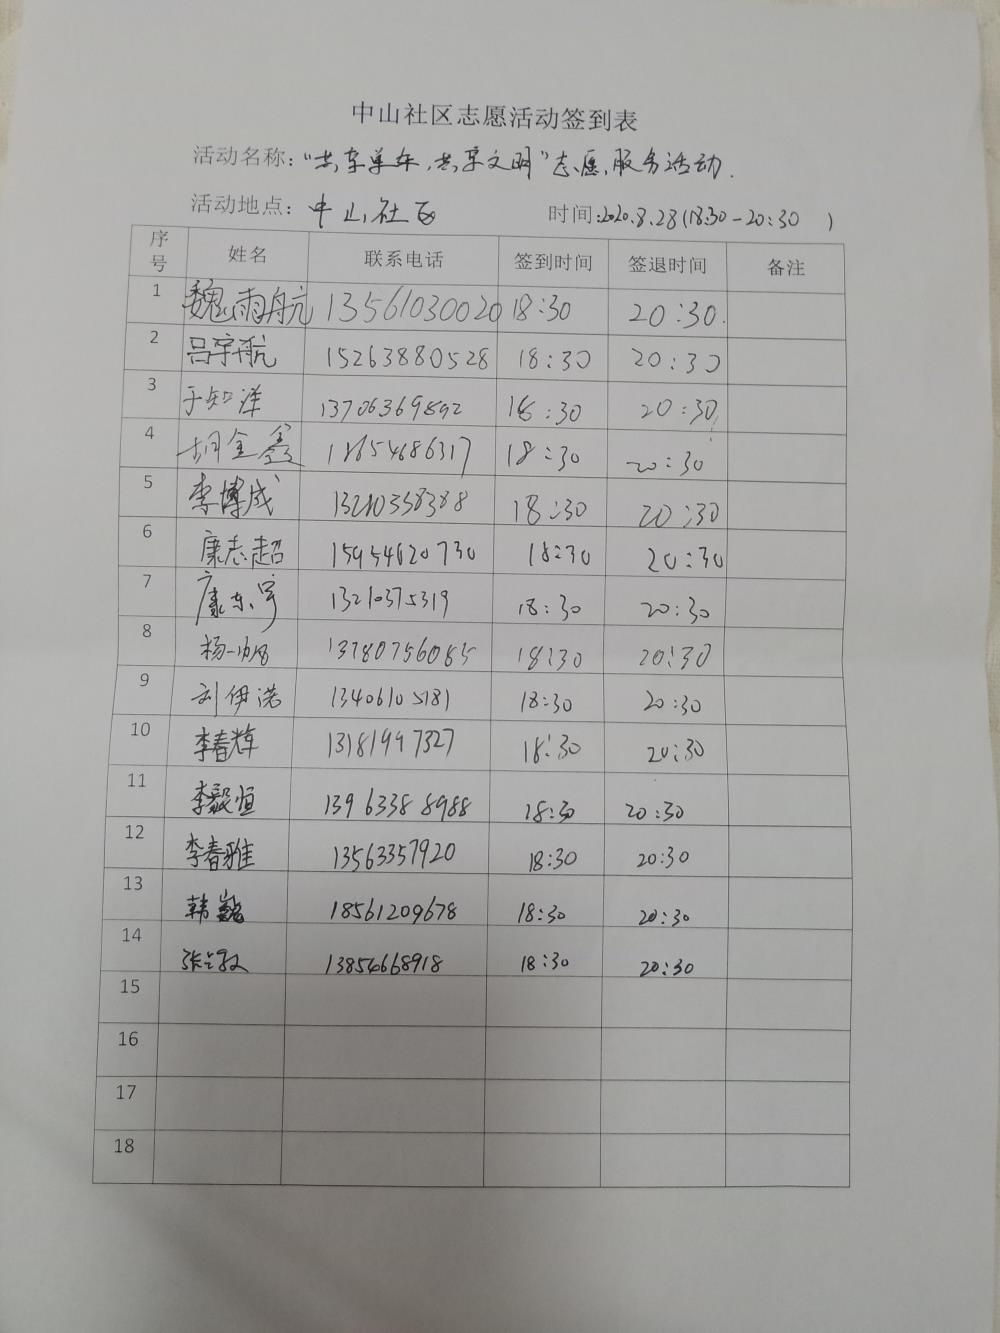 中山社区志愿活动签到表
活动名称:“共享单车,共享文明”志愿服务活动.
活动地点: 中山社区 时间:2020.8.28(18:30-20:30 )
序号 姓名 联系电话 签到时间 签退时间 备注
1 魏雨航 13561030020 18:30 20:30.
2 吕宇航 15263880528 18:30 20:30
3 于知洋 13706369892 18:30 20:30
4 胡金鑫 18654686317 18:30 20:30
5 李博成 13210358388 18:30 20:30
6 康志超 15954620730 18:30 20:30
7 康东宇 13210375319 18:30 20:30
8 杨一帆 13780756085 18:30 20:30
9 刘伊诺 13406105181 18:30 20:30
10 李春辉 13181997327 18:30 20:30
11 李毅恒 13963388988 18:30 20:30
12 李春雅 13563357920 18:30 20:30
13 韩 18561209678 18:30 20:30
14 张 13854668918 18:30 20:30
15
16
17
18